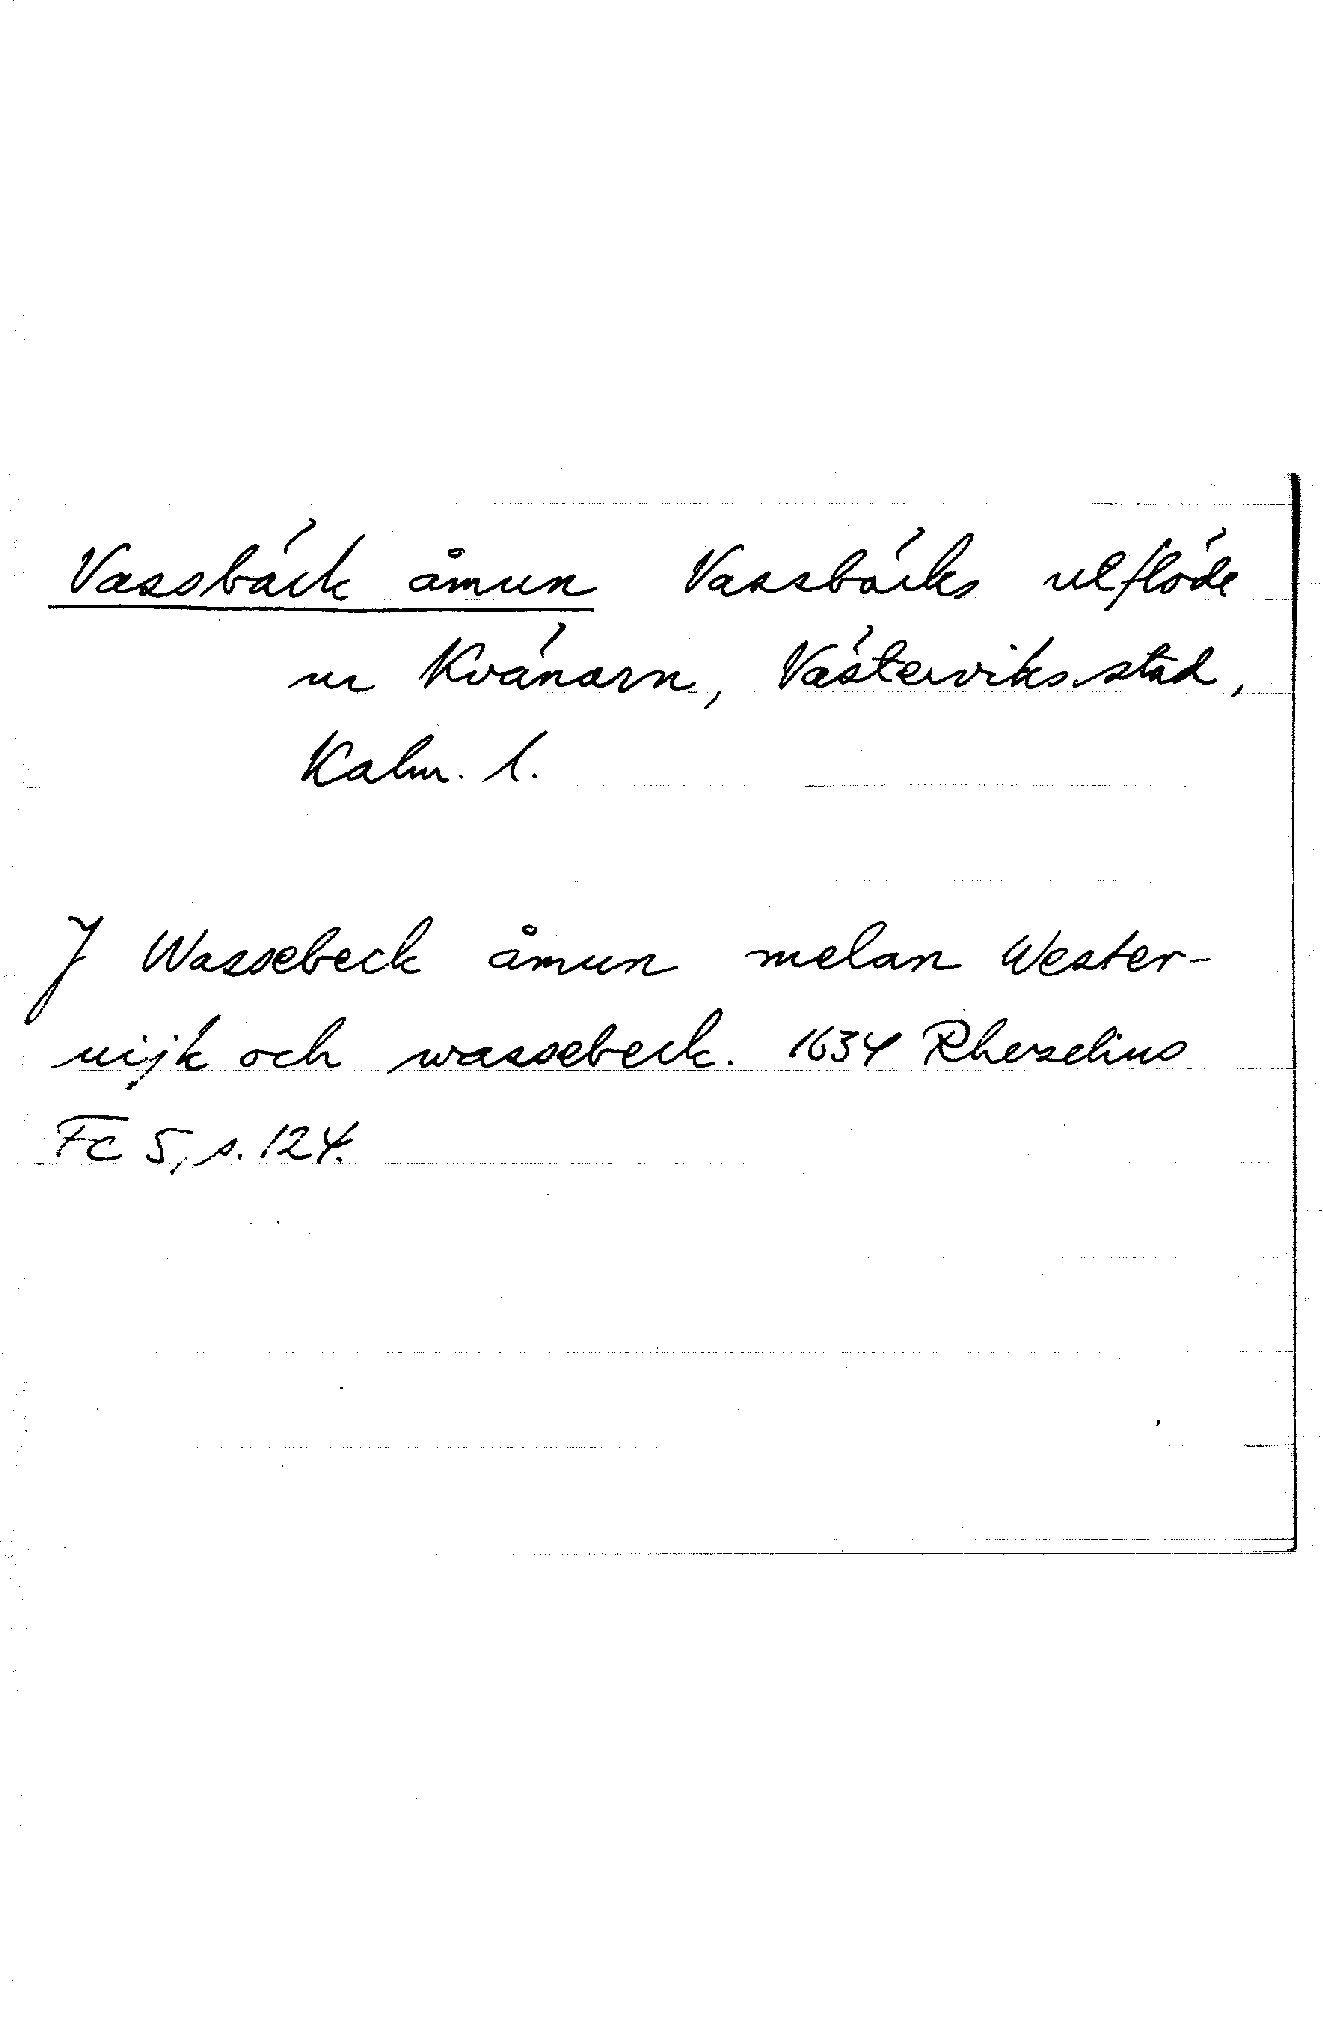 Vassbäck åmun Vassbäcks utflöde
ur Kvänarn, Västerviks stad,
Kalm. l.
J Wassebeck åmun melan Wester-
uijk och wassebeck. 1634 Rhezelius
Fc 5, s. 124.